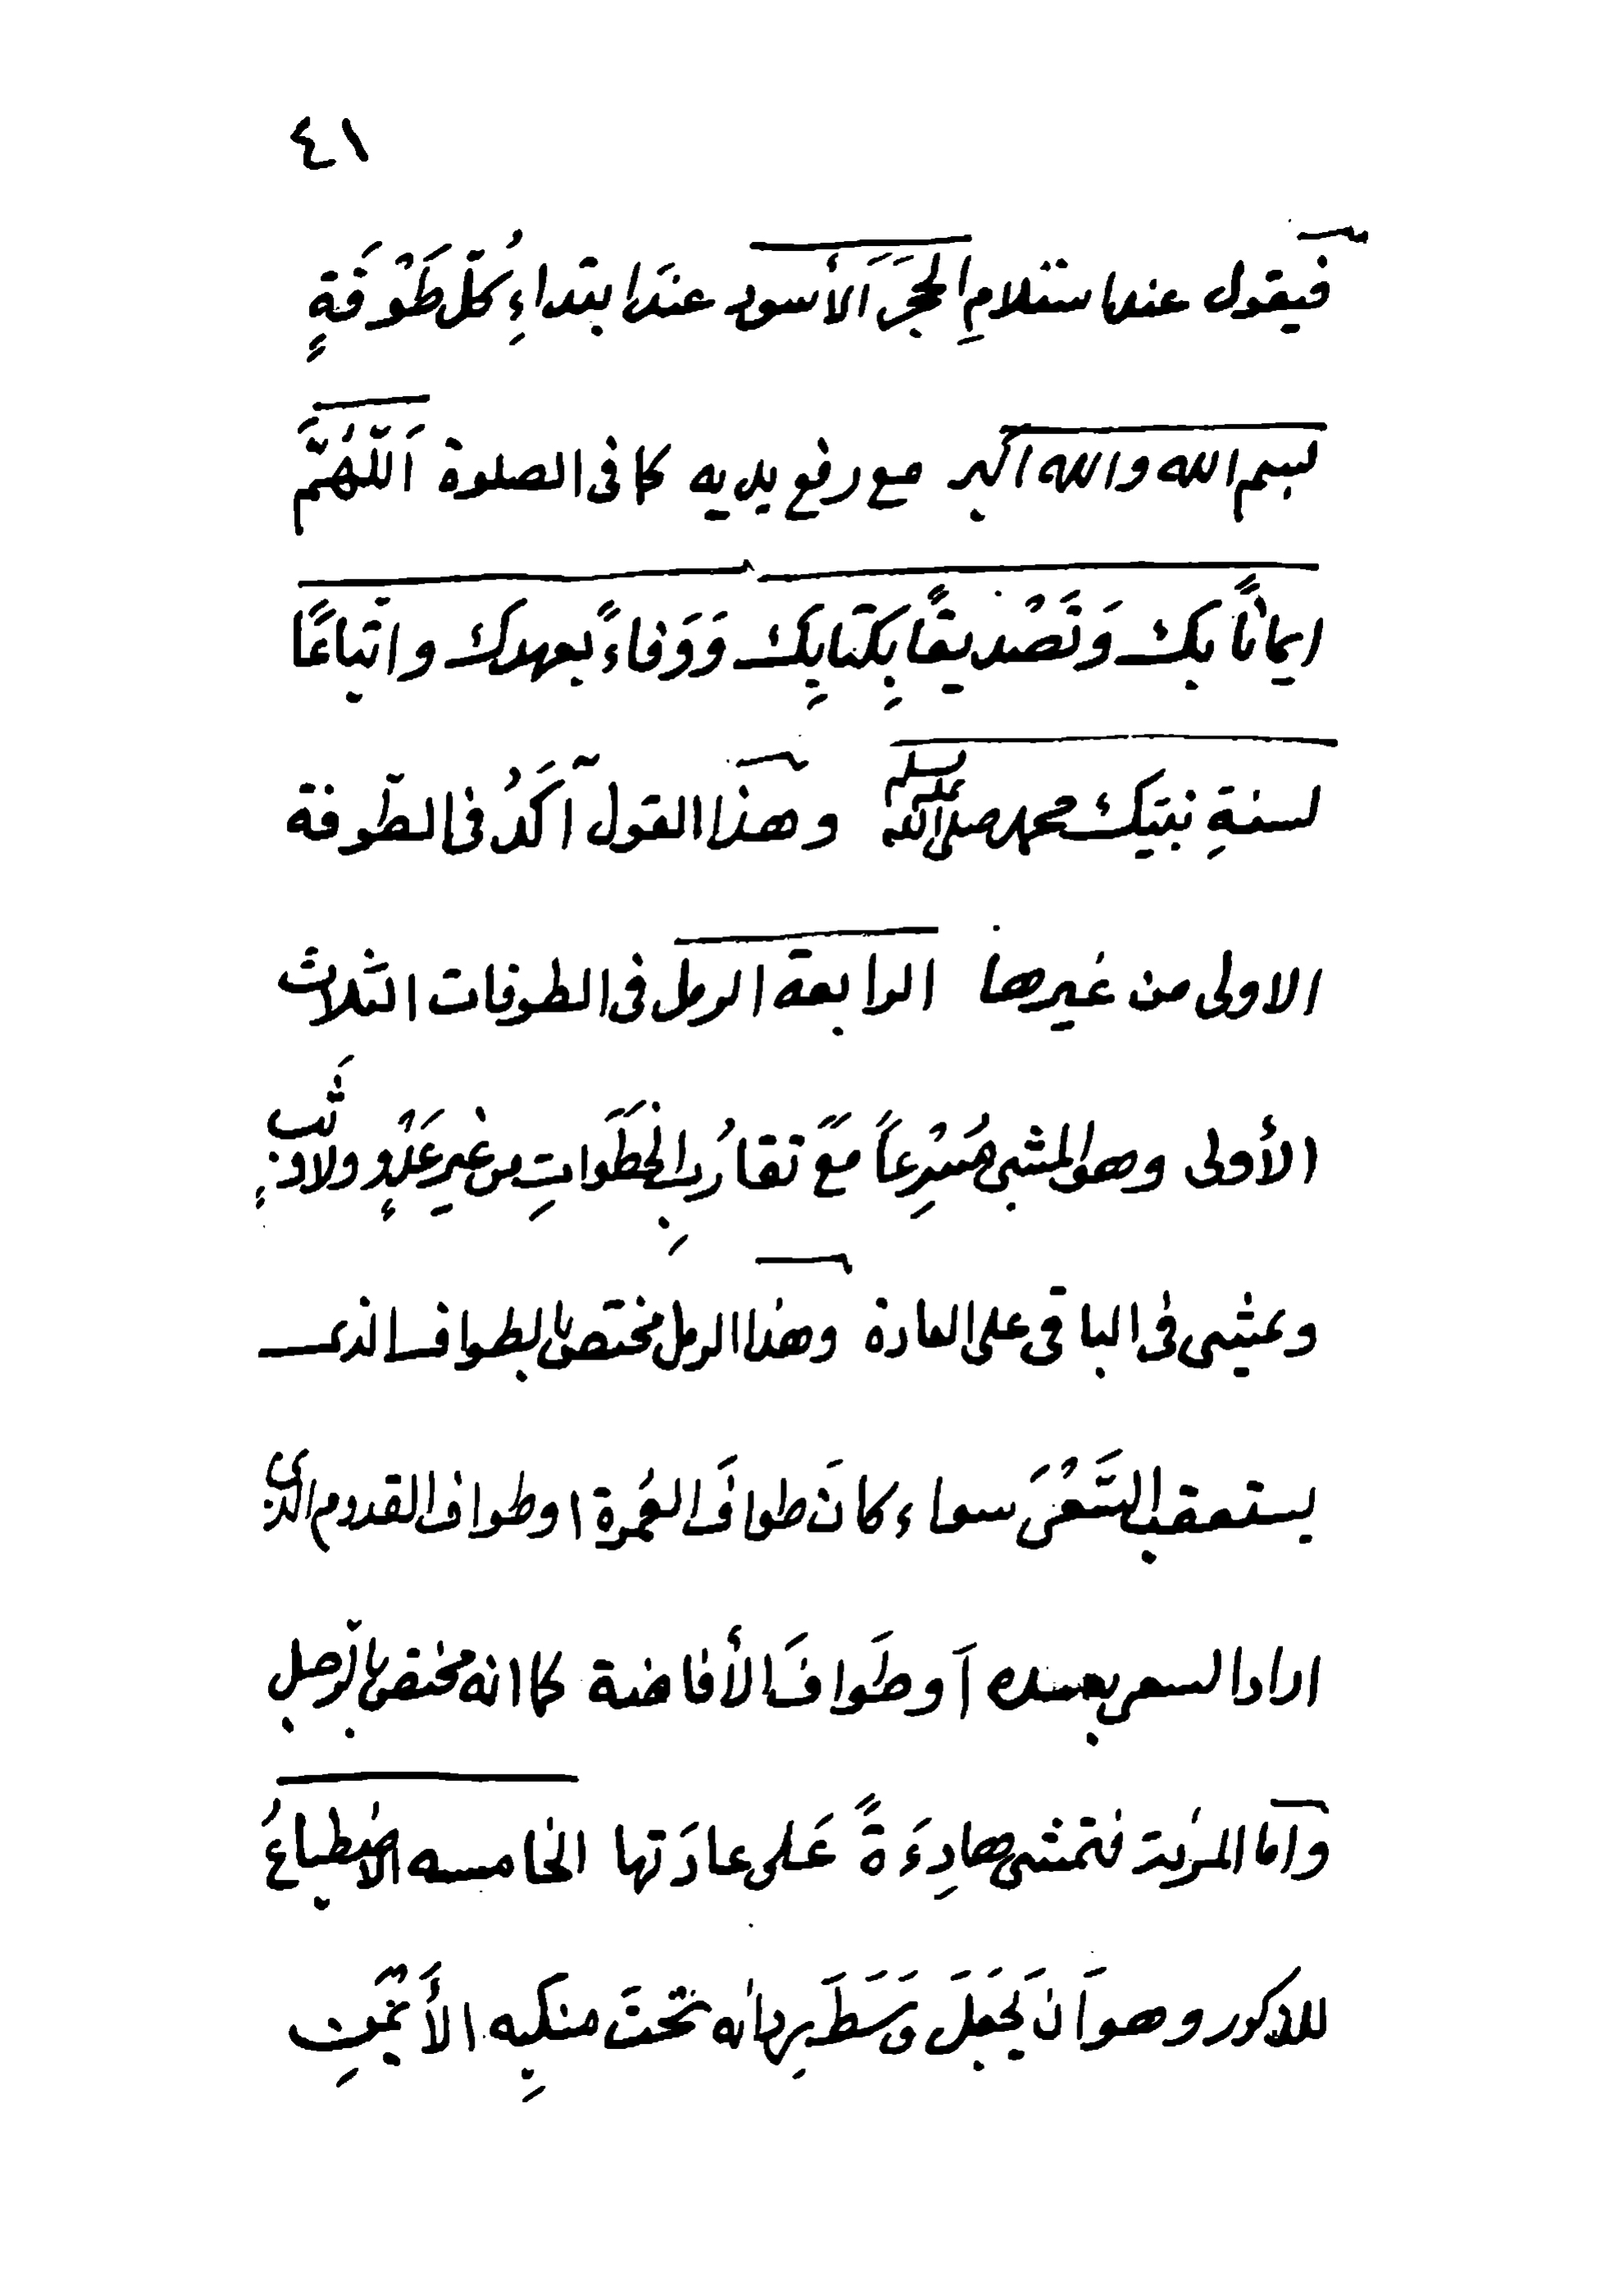 ٤١
فيقول عند استلامِ الحجَرَ اَلأسود عندَ ابتداءِ كُلّ طَوْفَةٍ
بسم الله والله اكبر مع رفع يديه كما فى الصلوة اَللّهُمَّ
ايمانًا بك وَتَصْديقًا بِكتابِك وَوَفاءً بعهدك واتباعًا
لسنةِ نبيّك محمد صلى الله عليه وسلم وهذا القول آكَدُ فى الطّوفة
الاولى من غيرها الرابعة الرمل فى الطوفات الثلاث
الأولى وهو المشى مُسْرِعاً مَعَ تقارُبِ الخَطَوَاتِ من غير عَدْوٍ ولا وثَبٍ
ويمشى فى الباقى على العادة وهذا الرمل مختص بالطواف الذى
يستعقب السَّعْىَ سواء كانَ طوافَ العُمرة او طواف القدوم الذى
اراد السعى بعده اَوطَوافَ الأفاضة كما انه مختص بالرّجل
وأما المرئة فتمشى هادِءَةً عَلى عادَتها الخامسه الاضطباعُ
للذكور وهو اَن يَجعَلَ وَسَطَ رِدائه تحتَ منكبِه الأَيْمَنِ